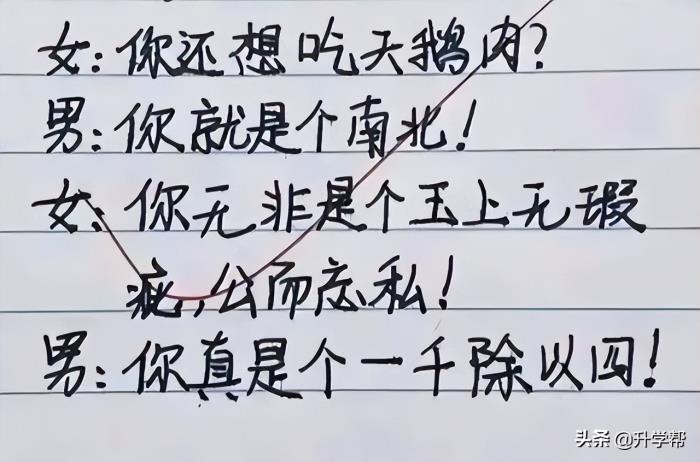 女:你还想吃天鹅肉?
男:你就是个南北!
女:你无非是个玉上无瑕
疵,公而忘私!
男:你真是个一千除以四!
头条 @升学帮